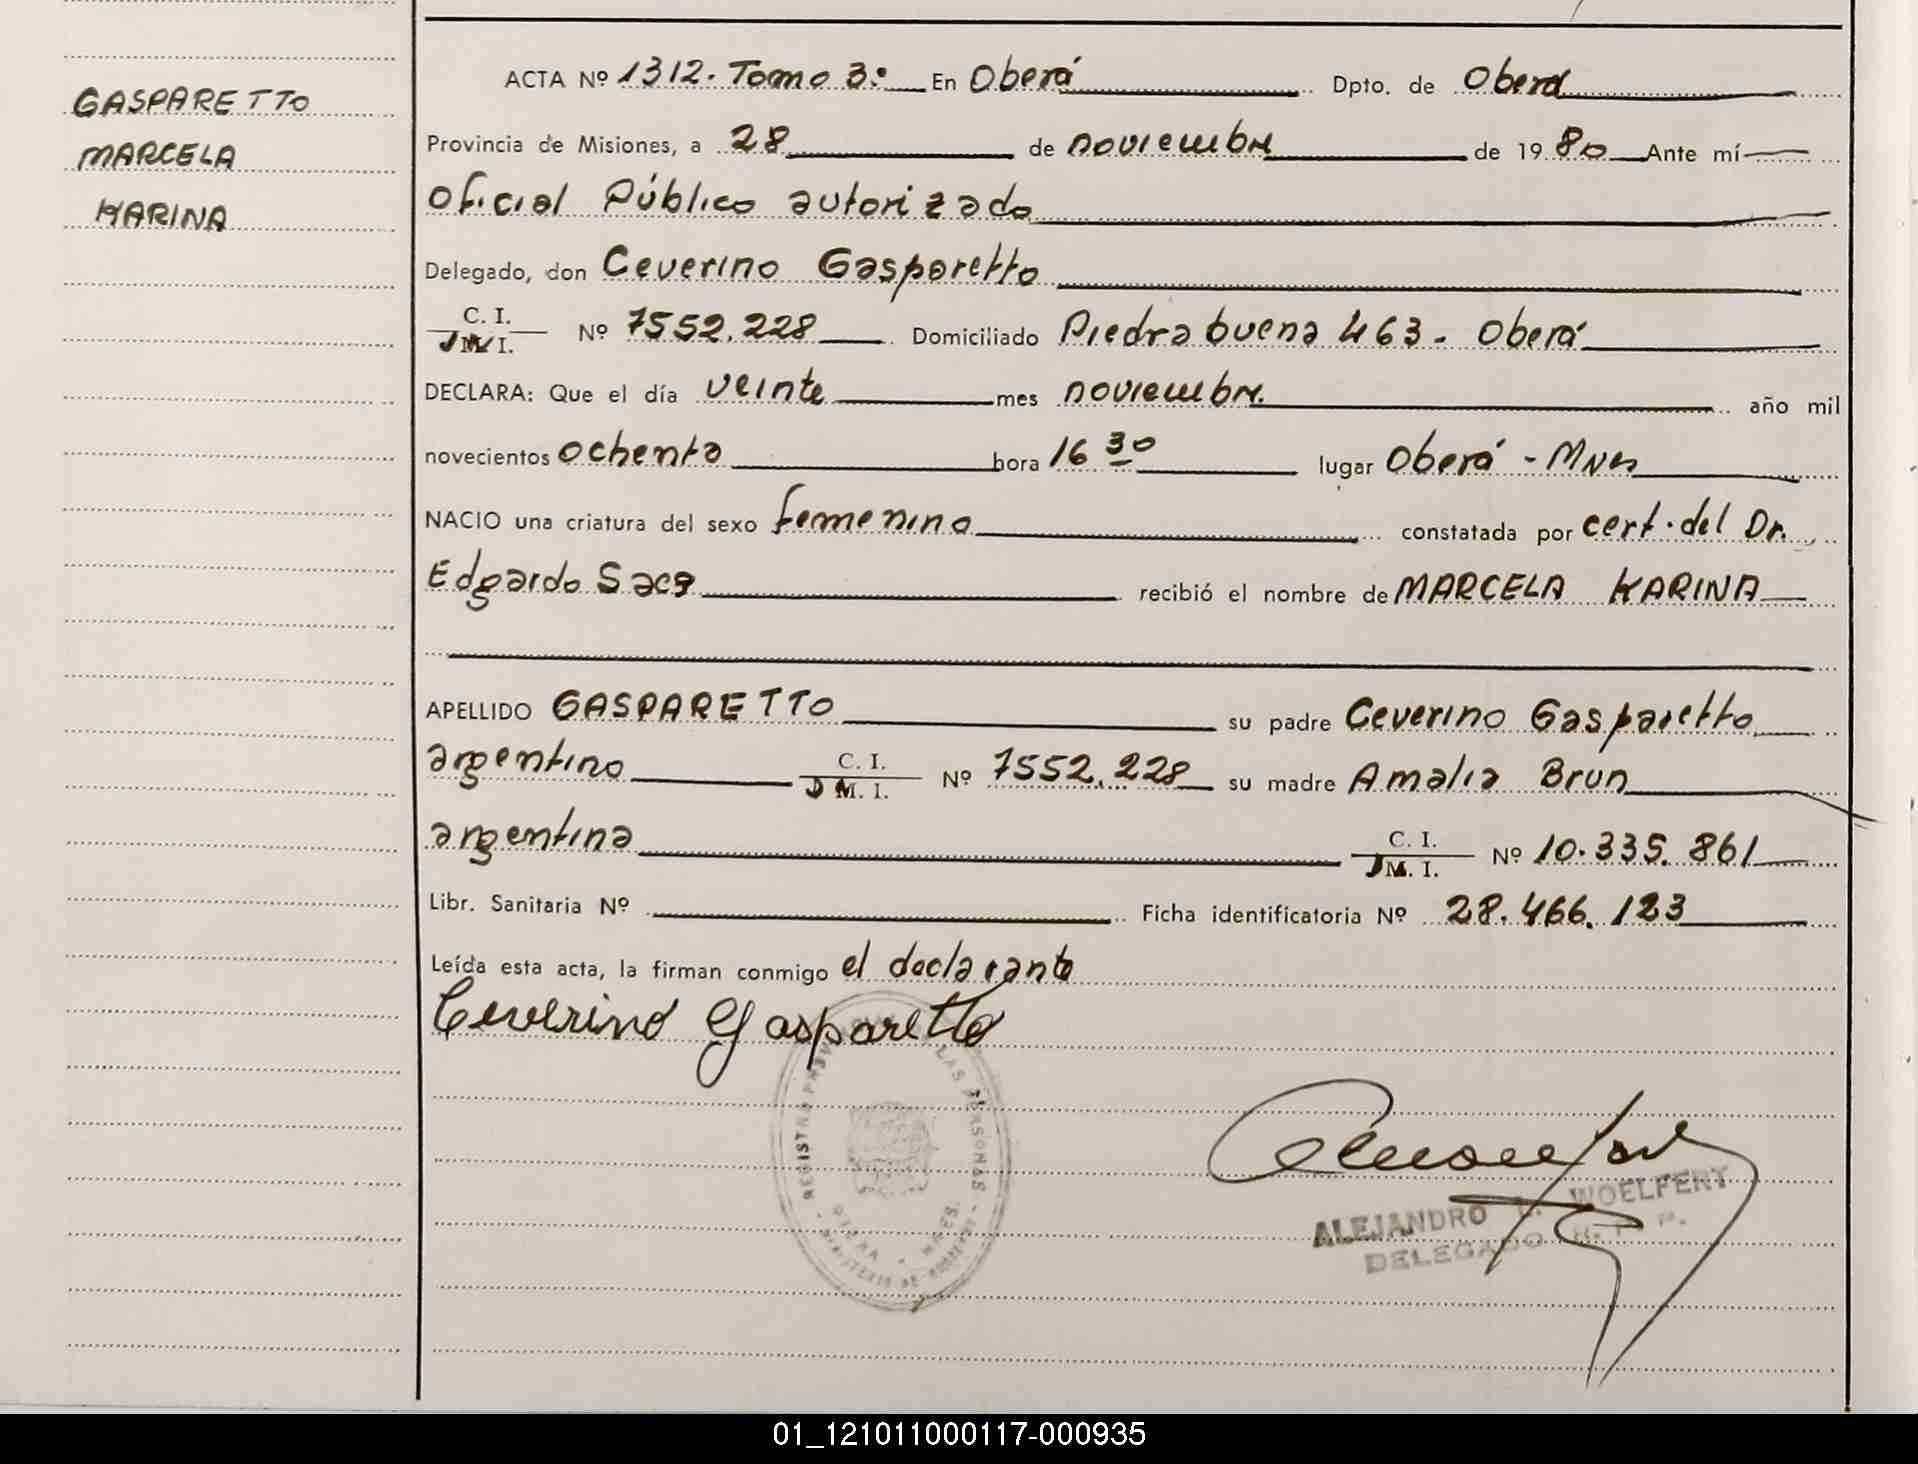 GASPARETTO
MARCELA
KARINA
ACTA Nº 1312. Tomo 3º En Oberá Dpto. de Oberá
Provincia de Misiones, a 28 de noviembre de 1980 Ante mí
Oficial Público autorizado
Delegado, don Ceverino Gasparetto
C. I.
D M. I. Nº 7552.228 Domiciliado Piedra buena 463 - Oberá
DECLARA: Que el día veinte mes noviembre. año mil
novecientos ochenta hora 16 30 lugar Oberá - Mnes
NACIO una criatura del sexo femenino constatada por cert. del Dr.
Edgardo Saca recibió el nombre de MARCELA KARINA
APELLIDO GASPARETTO su padre Ceverino Gasparetto
argentino C. I.
D M. I. Nº 7552.228 su madre Amalia Brun
argentina C. I.
D M. I. Nº 10.335.861
Libr. Sanitaria Nº Ficha identificatoria Nº 28.466.123
Leída esta acta, la firman conmigo el declarante
Ceverino Gasparetto
REGISTRO PROVINCIAL DE LAS PERSONAS
OBERA - MNES.
MINISTERIO DE GOBIERNO
ALEJANDRO L. WOELFERT
DELEGADO R. P. P.
01_121011000117-000935